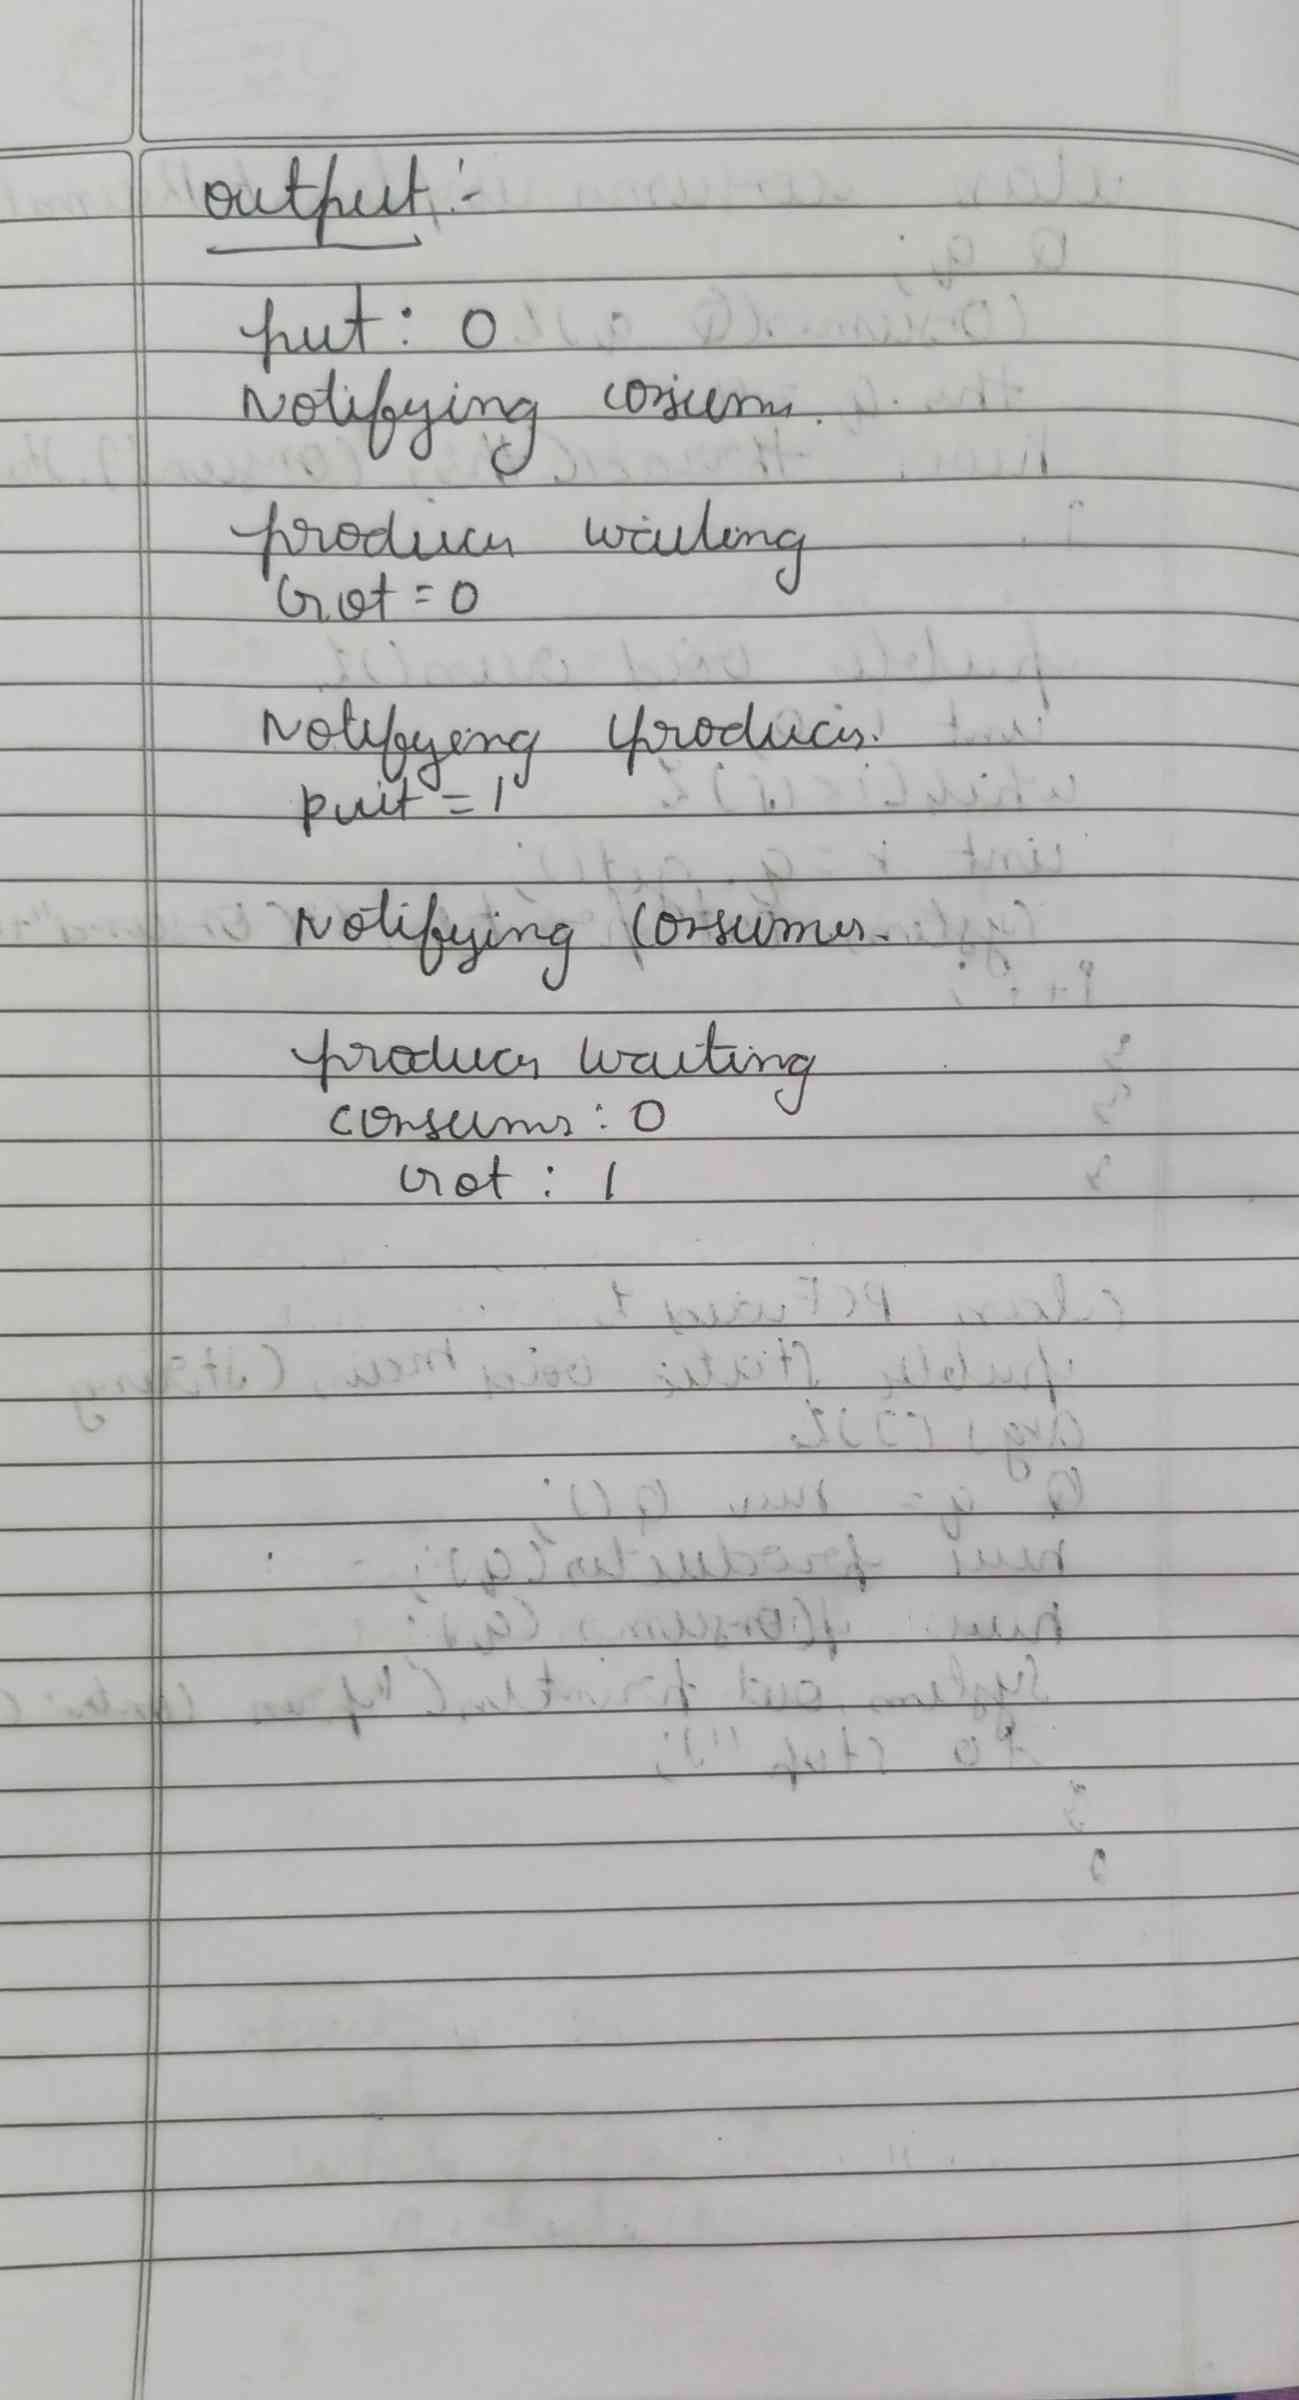 output:-
put: 0
Notifying consumer.
producer waiting
Got = 0
Notifying producer.
put = 1
Notifying consumer.
producer waiting
consumer: 0
Got: 1